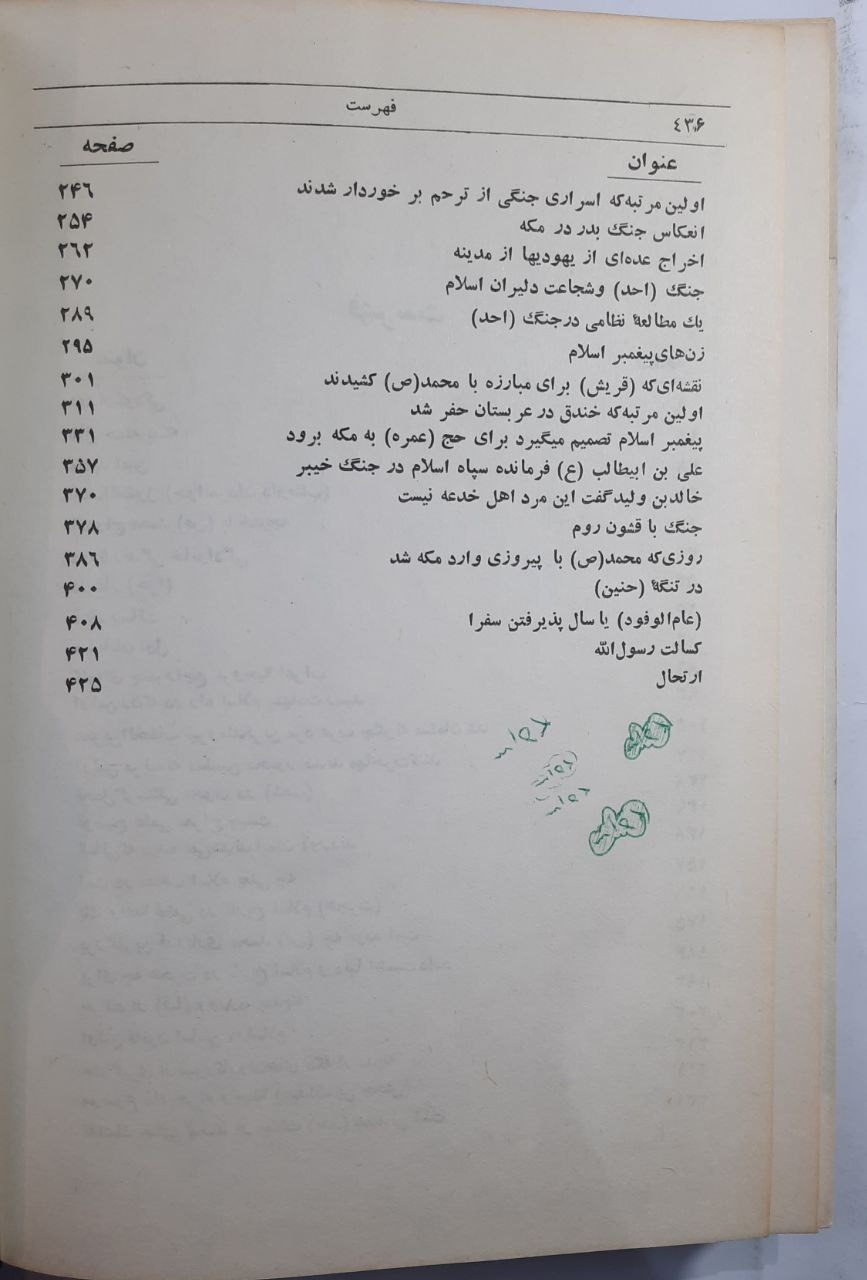 فهرست
۴۳۶
عنوان صفحه
اولین مرتبه‌که اسرای جنگی از ترحم بر خوردار شدند ۲۴۶
انعکاس جنگ بدر در مکه ۲۵۴
اخراج عده‌ای از یهودیها از مدینه ۲۶۲
جنگ (احد) وشجاعت دلیران اسلام ۲۷۰
یك مطالعهٔ نظامی درجنگ (احد) ۲۸۹
زن‌های‌پیغمبر اسلام ۲۹۵
نقشه‌ای‌که (قریش) برای مبارزه با محمد(ص) کشیدند ۳۰۱
اولین مرتبه‌که خندق در عربستان حفر شد ۳۱۱
پیغمبر اسلام تصمیم میگیرد برای حج (عمره) به مکه برود ۳۳۱
علی بن ابیطالب (ع) فرمانده سپاه اسلام در جنگ خیبر ۳۵۷
خالدبن ولیدگفت این مرد اهل خدعه نیست ۳۷۰
جنگ با قشون روم ۳۷۸
روزی‌که محمد(ص) با پیروزی وارد مکه شد ۳۸۶
در تنگهٔ (حنین) ۴۰۰
(عام‌الوفود) یا سال پذیرفتن سفرا ۴۰۸
کسالت رسول‌الله ۴۲۱
ارتحال ۴۲۵